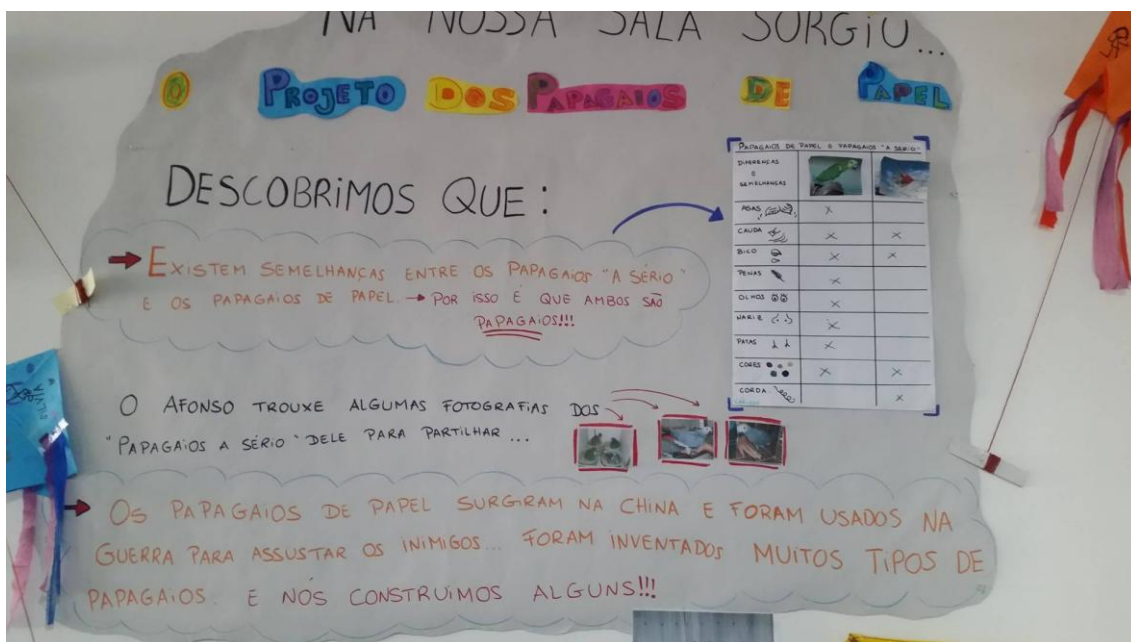 NA NOSSA SALA SURGIU...
O PROJETO DOS PAPAGAIOS DE PAPEL
DESCOBRIMOS QUE:
EXISTEM SEMELHANÇAS ENTRE OS PAPAGAIOS "A SÉRIO"
E OS PAPAGAIOS DE PAPEL. → POR ISSO É QUE AMBOS SÃO
PAPAGAIOS!!!
PAPAGAIOS DE PAPEL E PAPAGAIOS "A SÉRIO"
DIFERENÇAS
E
SEMELHANÇAS
ASAS X
CAUDA X X
BICO X X
PENAS X
OLHOS X
NARIZ X
PATAS X
CORES X X
CORDA X
O AFONSO TROUXE ALGUMAS FOTOGRAFIAS DOS
"PAPAGAIOS A SÉRIO" DELE PARA PARTILHAR...
OS PAPAGAIOS DE PAPEL SURGIRAM NA CHINA E FORAM USADOS NA
GUERRA PARA ASSUSTAR OS INIMIGOS... FORAM INVENTADOS MUITOS TIPOS DE
PAPAGAIOS. E NÓS CONSTRUÍMOS ALGUNS!!!